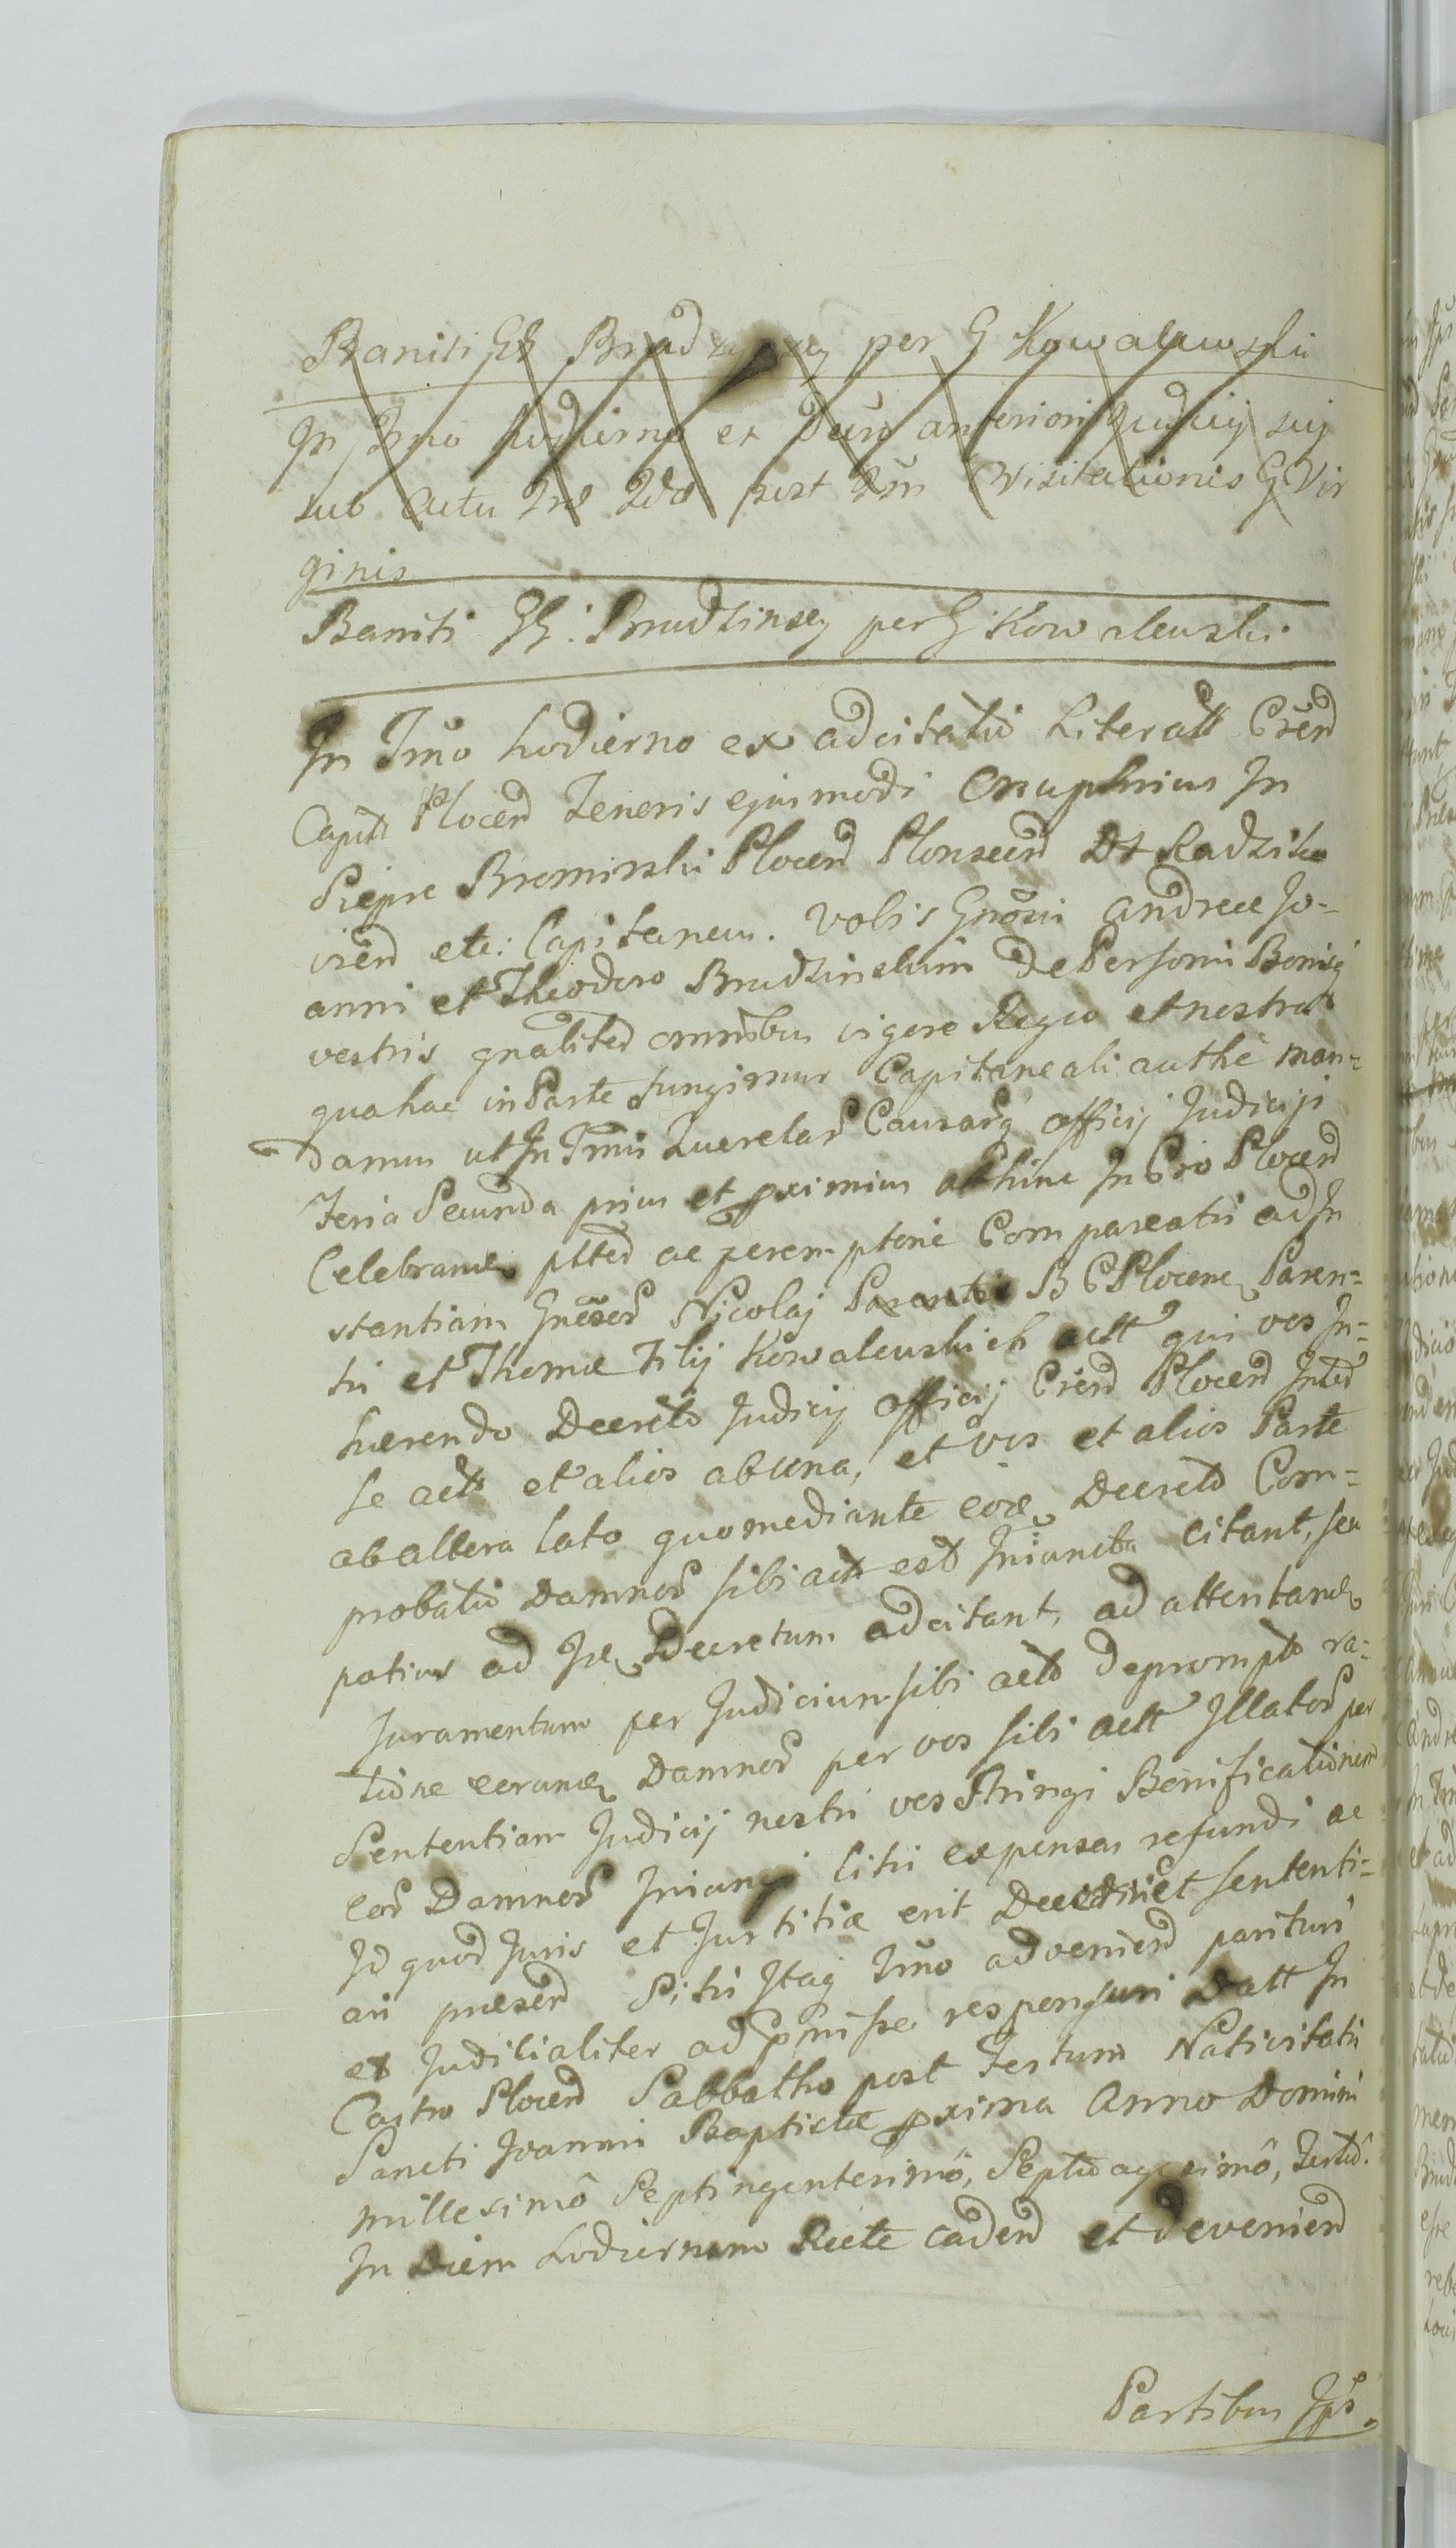 Baniti GG Brudzinscy per G Kowalewski
In Tmo hodierno ex Decr anteriori Judicij sui
sub Actu Fræ 2dæ post Fm Visitationis G Vir
ginis
Baniti GG. Brudzinscy per G Kowalewski
In Tmo hodierno ex adcitatio Literatt Cren
Capit Plocen Teneris ejusmodi Onuphrius In
Siepre Bromirski Plocen Plonscen Dt Radziko
vien etc: Capitaneus. Vobis Gnosis Andreæ Jo=
anni et Theodoro Brudzinskim De Personis Bonisq
vestris gnaliter omnibus vigore Regia et nostra
qua hac in Parte fungimur Capitaneali authe man=
damus ut In Tmis Querelar Causarq officij Judicij
Feria Secunda prius et pximius abhinc In Cro Plocen
Celebran ptter ac peremptorie Compareatis ad In
stantiam Gnesor Nicolaj B C Plocen Paren=
tis et Thomæ Filij Kowalewskich actt qui vos In=
hærendo Decreto Judicij officij Cren Plocen Inter
se act et alios ab una, et vos et alios Parte
ab altera lato quo mediante eor Decreto Com=
probatio Damnor sibi act est Iniuncta citant, seu
potius ad Decretum adcitant, ad attentan
Juramentum per Judicium sibi acto deprompto ra=
tione eorum Damnor per vos sibi actt Illator per
Sententiam Judicij nostri vos Stringi Bonificationem
eor Damnor Iniungi litis expensas refundi ac
Id quod Juris et Justitiæ erit Decerni et sententi=
ari præsen Sitis Itaq Tmo advenien parituri
et Judicialiter ad pmissa responsuri Datt In
Castro Plocen Sabbatho post Festum Nativitatis
Sancti Joannis Baptistæ pxima Anno Domini
millesimô Septingentesimô, Septuagesimô, Tertiô.
In Diem hodiernum Recte caden et devenien
Partibus Ips